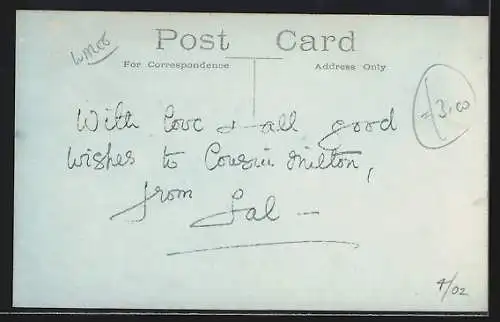 Post Card
For Correspondence Address Only
With love & all good
wishes to Cousin Milton,
from Sal —
3.00
4/02